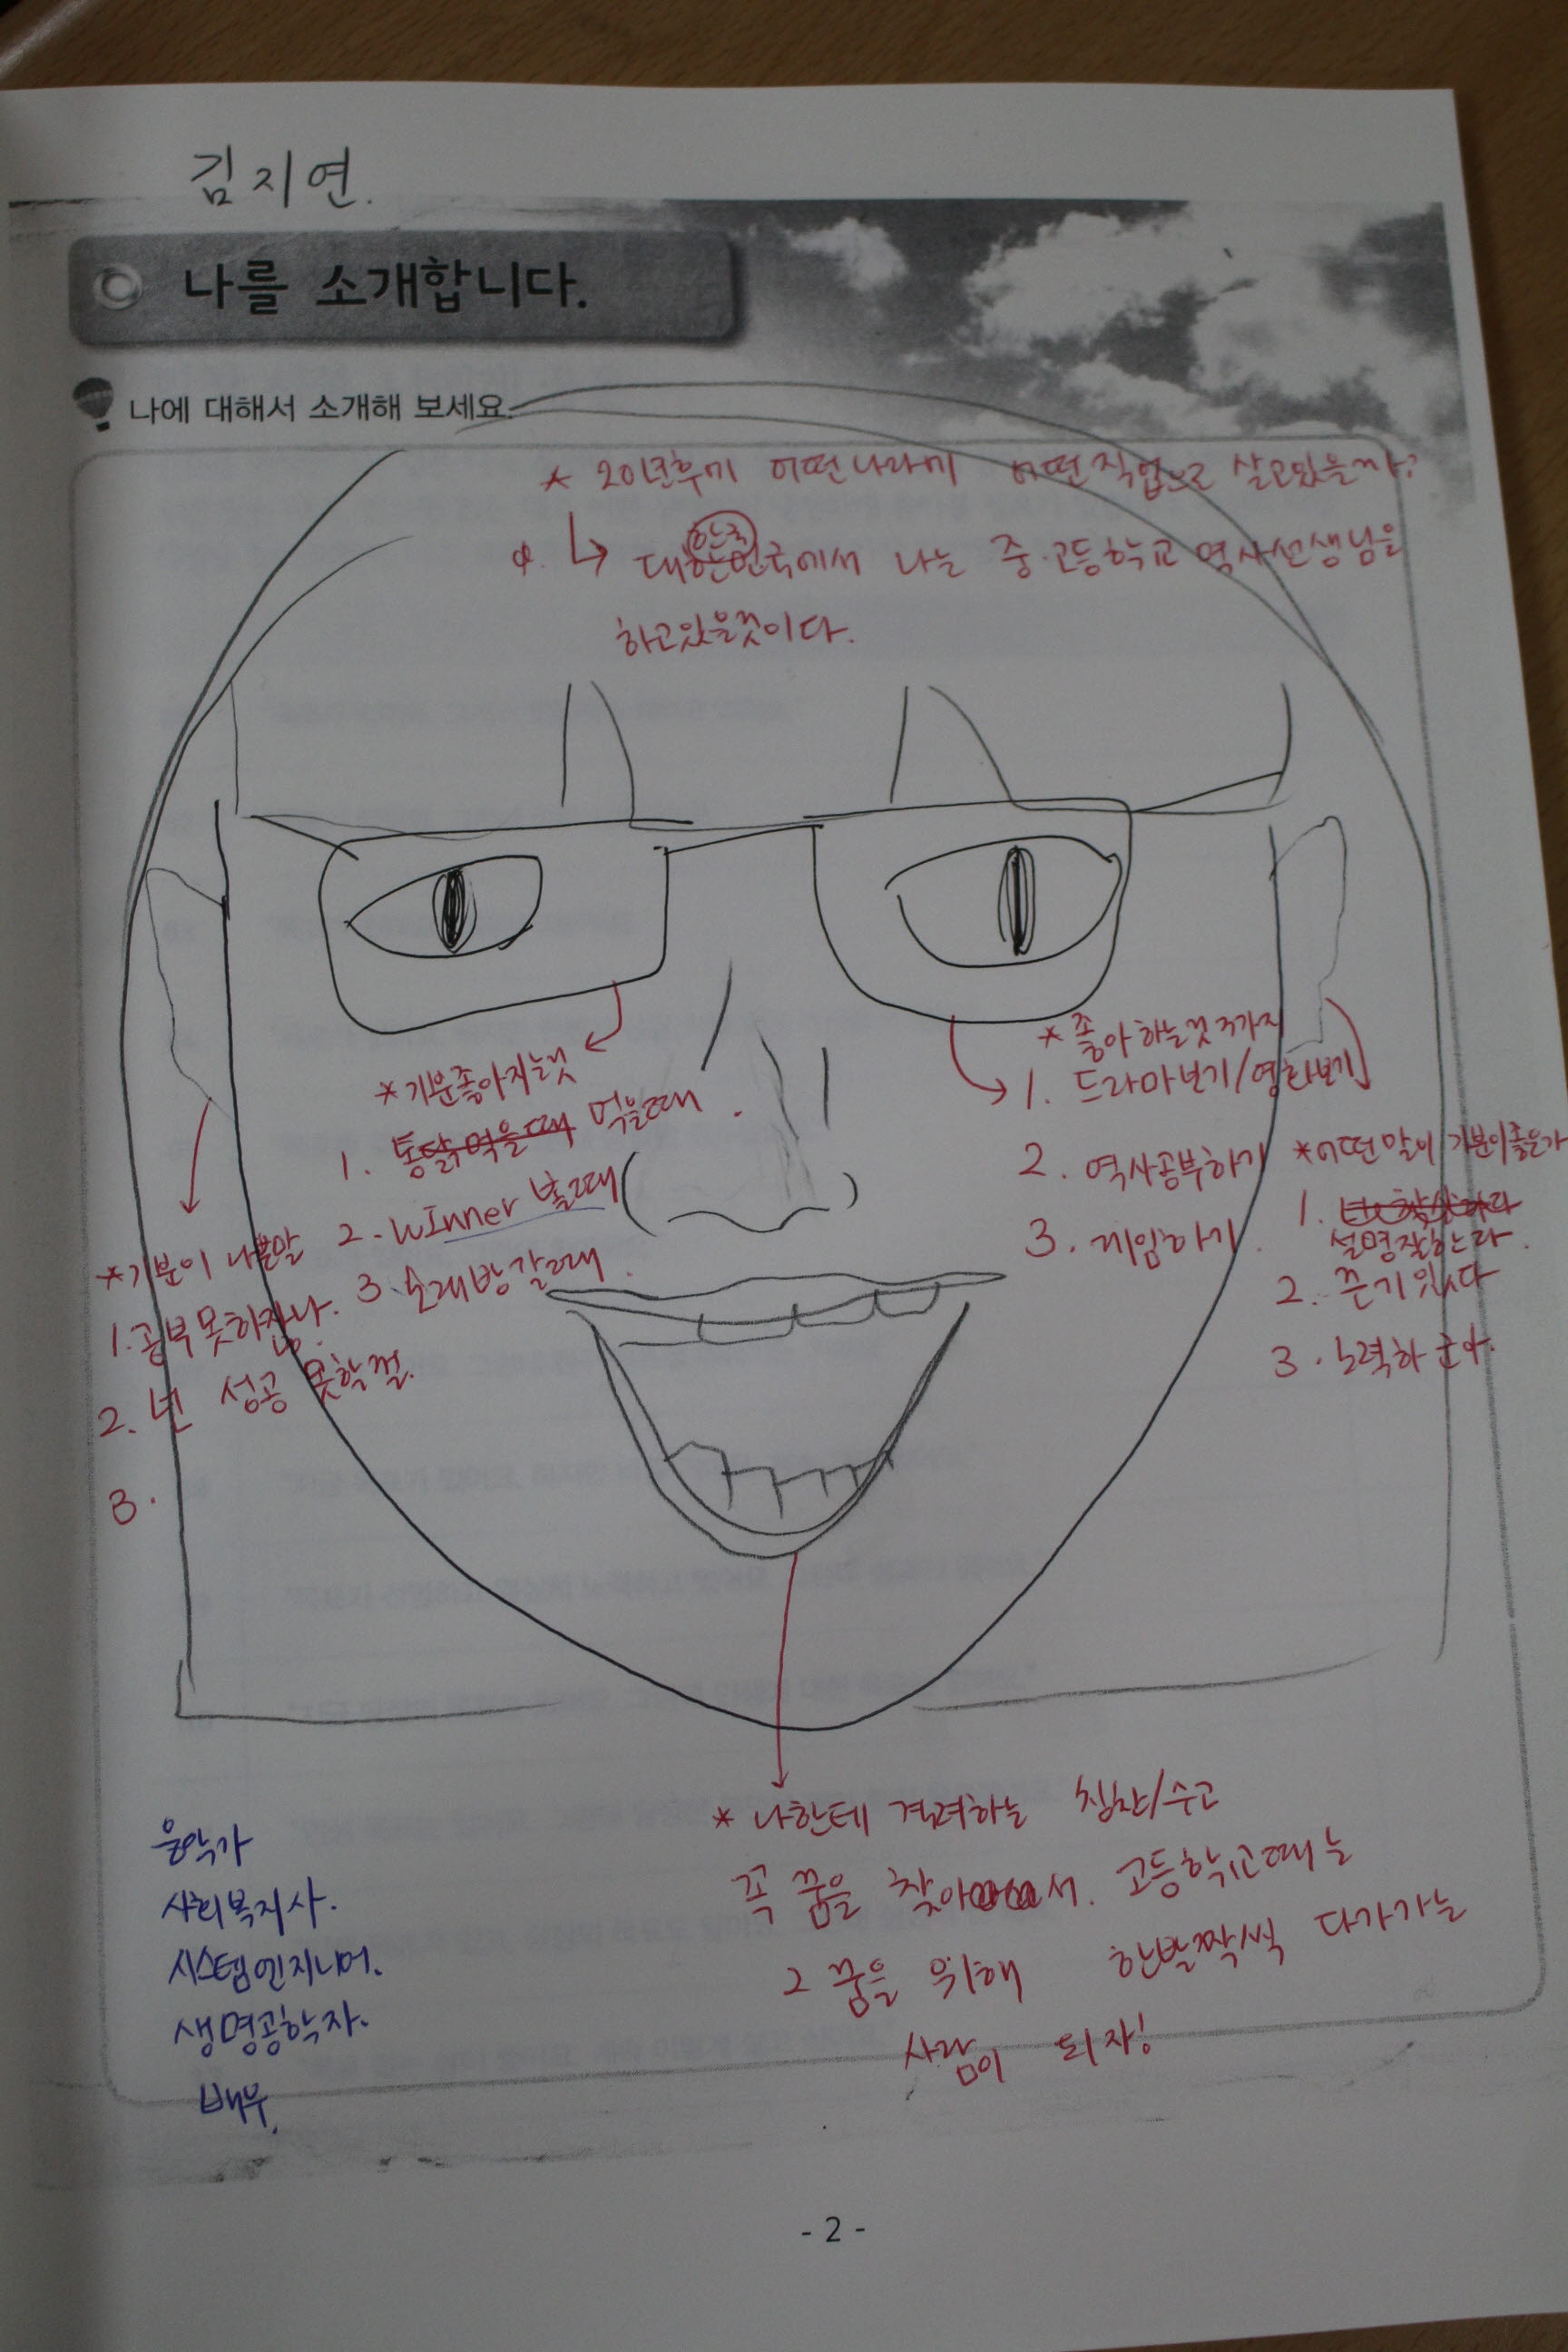 김지연.
나를 소개합니다.
나에 대해서 소개해 보세요.
* 20년후에 어떤나라에 어떤직업으로 살고있을까?
한국
대한민국에서 나는 중·고등학교 역사선생님을
하고있을것이다.
* 기분좋아지는것
1. 통닭먹을때 먹을때.
2. winner 볼때
3. 노래방갈때.
* 좋아하는것 3가지
1. 드라마보기/영화보기
2. 역사공부하기
3. 게임하기.
* 기분이 나쁜말
1. 공부못하잖냐.
2. 넌 성공 못할껄.
3.
* 어떤말이 기분이좋은가
1.
설명잘하는다.
2. 끈기있다
3. 노력하군아.
* 나한테 격려하는 칭찬/수고
꼭 꿈을 찾아서. 고등학교때는
그 꿈을 위해 한발짝씩 다가가는
사람이 되자!
음악가
사회복지사.
시스템엔지니어.
생명공학자.
배우.
- 2 -